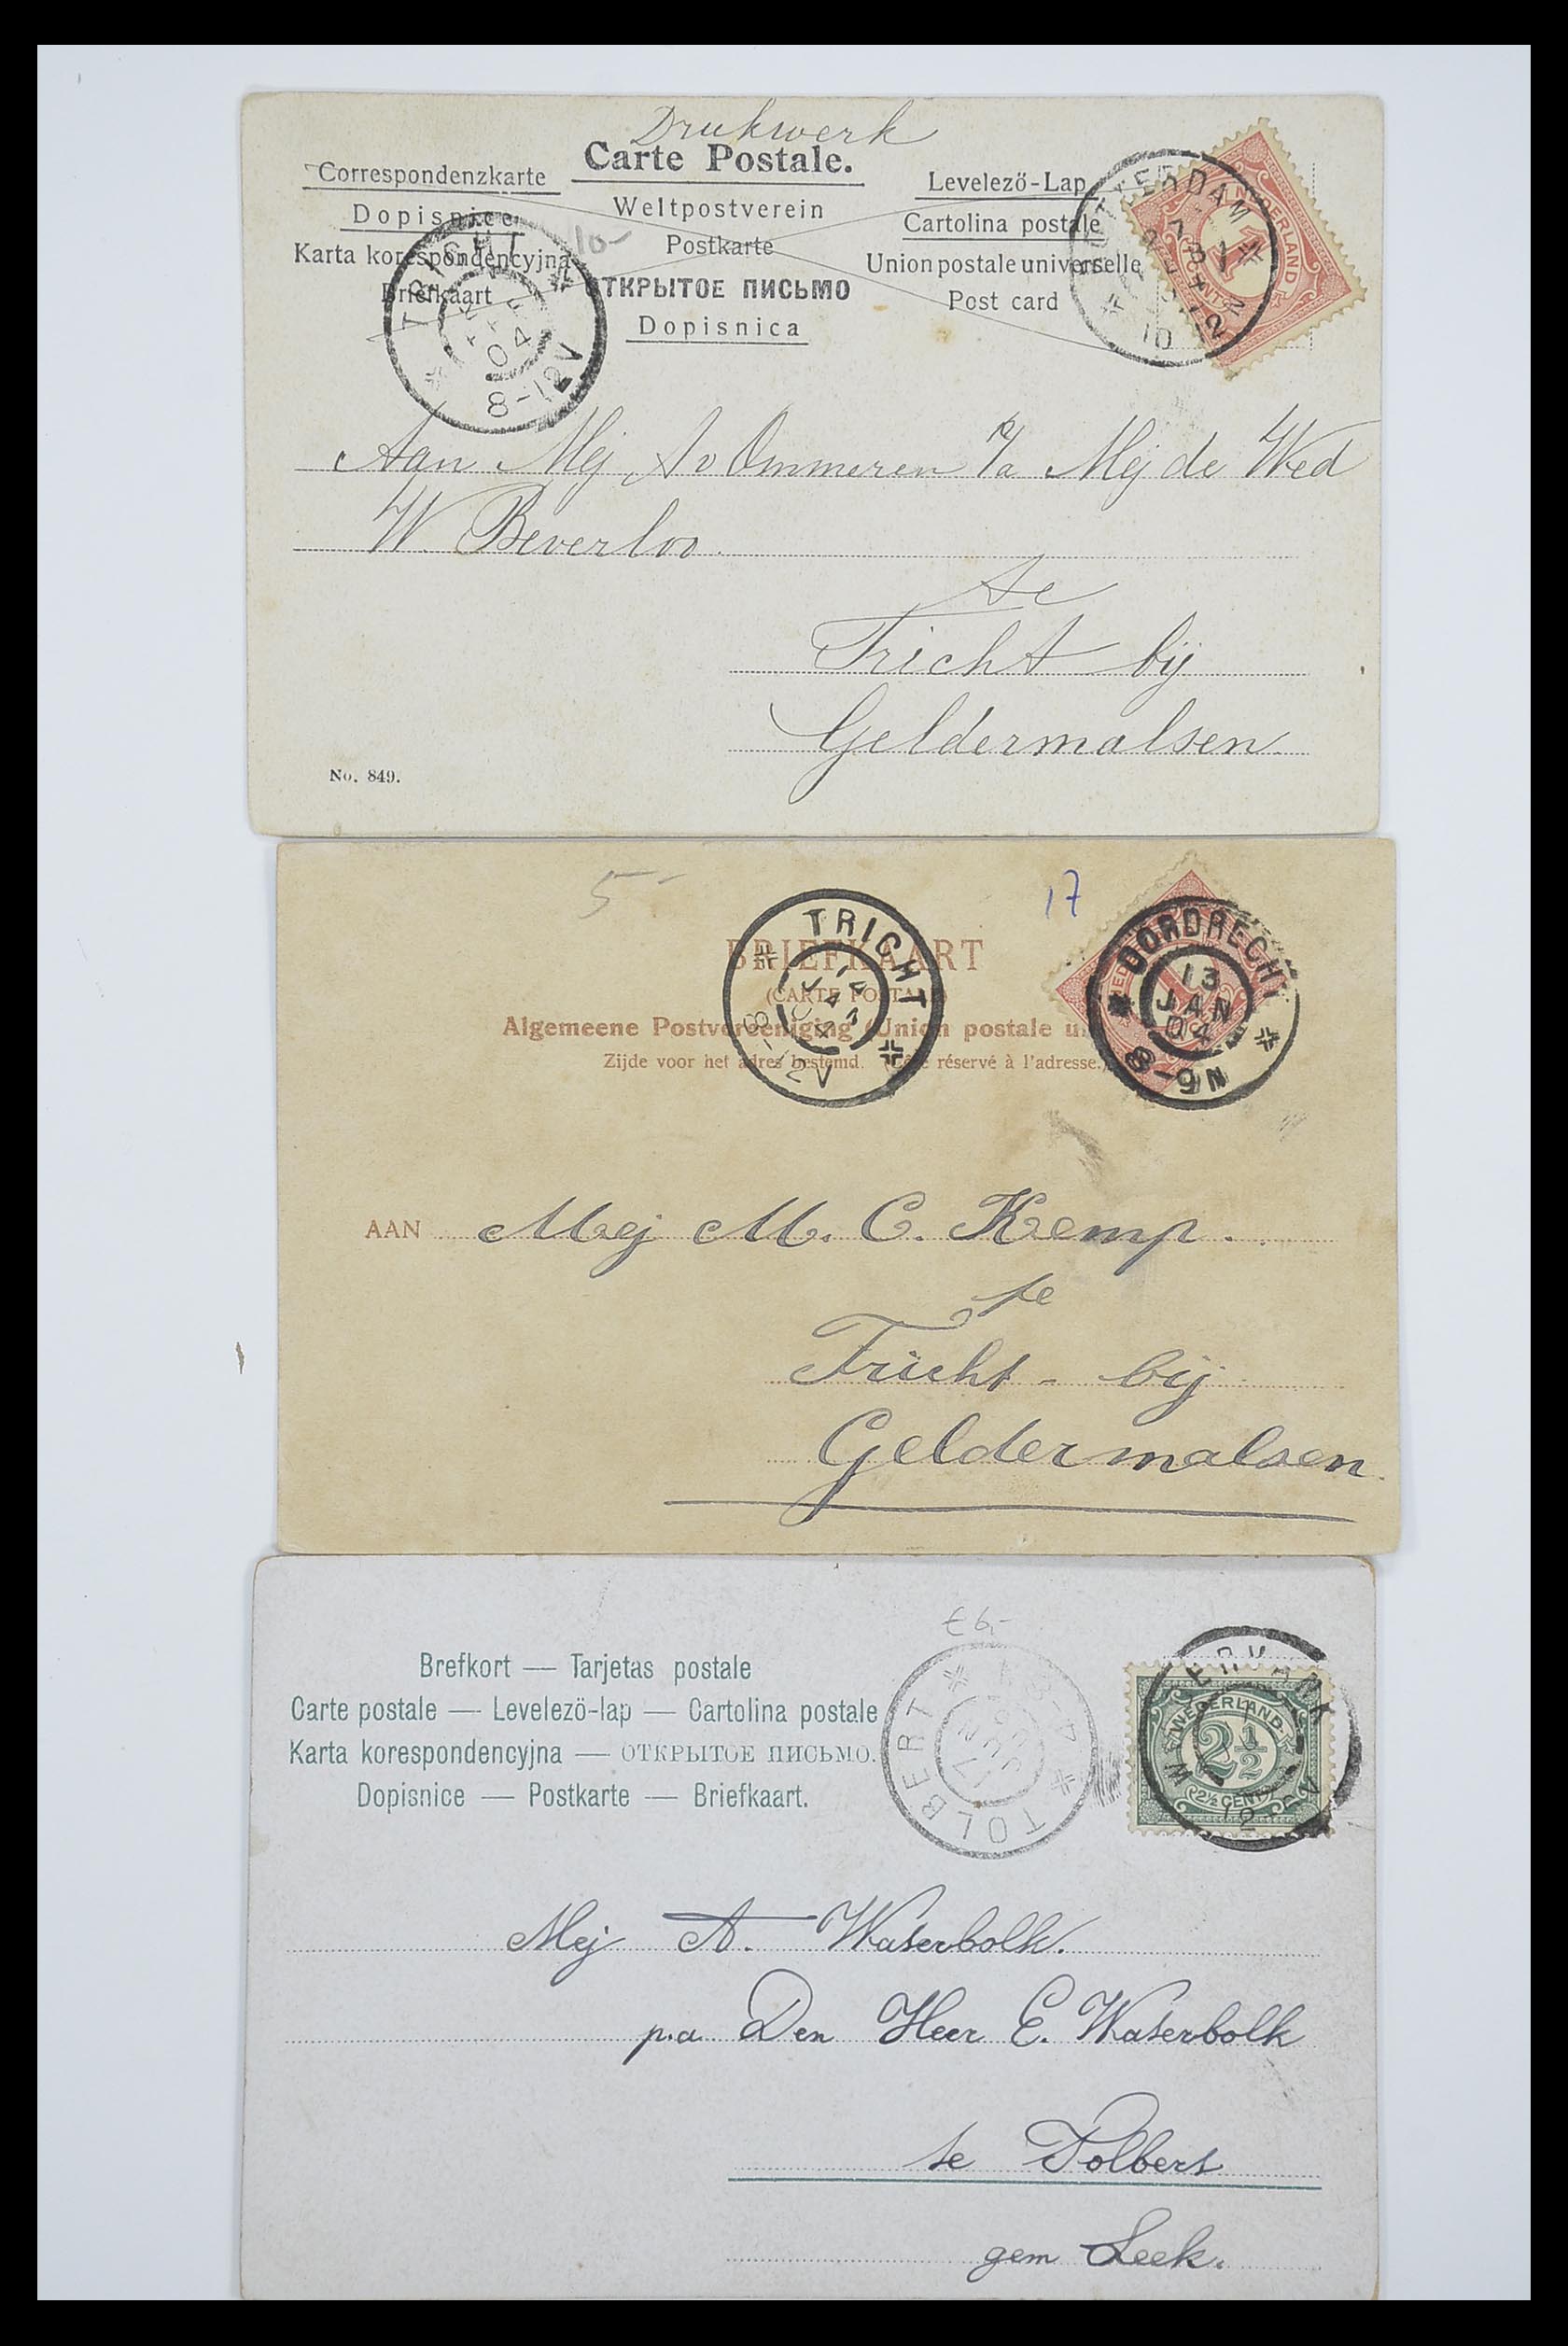 Drukwerk
Carte Postale.
Correspondenzkarte
Dopisnice
Karta korespondencyjna
Briefkaart
Weltpostverein
Postkarte
ТКРЫТОЕ ПИСЬМО
Dopisnica
Levelező-Lap
Cartolina postale
Union postale universelle
Post card
10-
TRICHT
04
8-12V
NEDERLAND
1
CENT
Aan Mej A v Ommeren p/a Mej de Wed
W. Beverloo.
te
Tricht bij
Geldermalsen.
No. 849.
5-
17
BRIEFKAART
(CARTE POSTALE)
Algemeene Postvereeniging (Union postale
Zijde voor het adres bestemd. (Côté réservé à l'adresse.)
TRICHT
14
JAN
04
8-12V
DORDRECHT
13
JAN
04
8-9N
AAN Mej M. C. Kemp.
te
Tricht - bij
Geldermalsen.
€ 6,-
Brefkort — Tarjetas postale
Carte postale — Levelező-lap — Cartolina postale
Karta korespondencyjna — ОТКРЫТОЕ ПИСЬМО.
Dopisnice — Postkarte — Briefkaart.
TOLBERT
NEDERLAND
2½
2½ CENT
Mej A. Waterbolk.
p.a. Den Heer E. Waterbolk
te Tolbert
gem Leek.